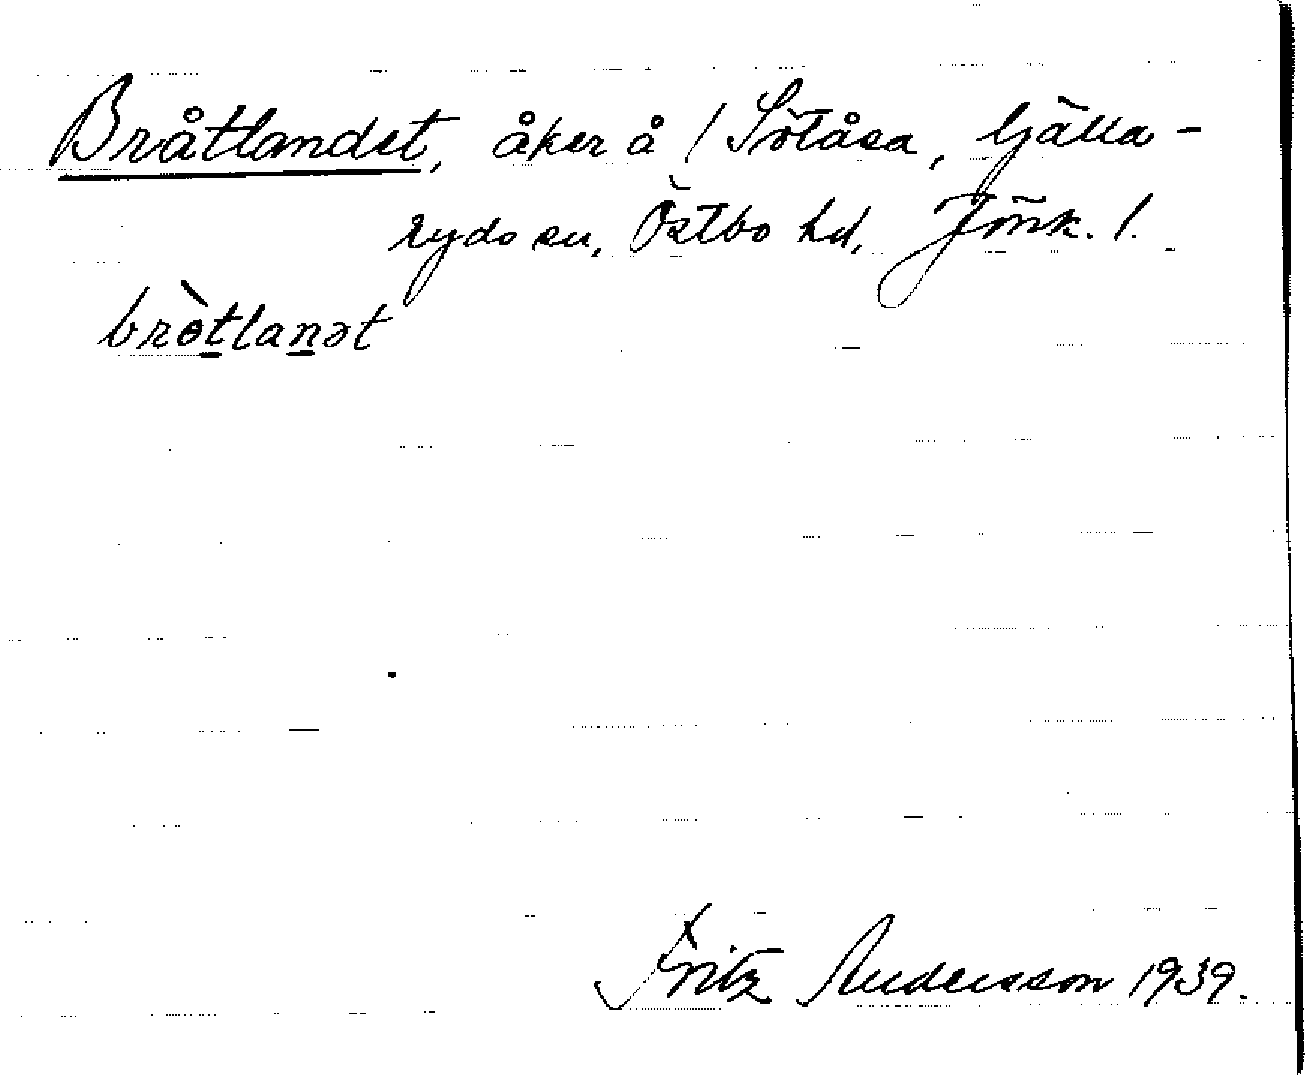 Bråtlandet, åker å / Sötåsa, Gjälla-
ryds sn, Östbo hd, Jönk. l.
brötlanət
Fritz Andersson 1939.